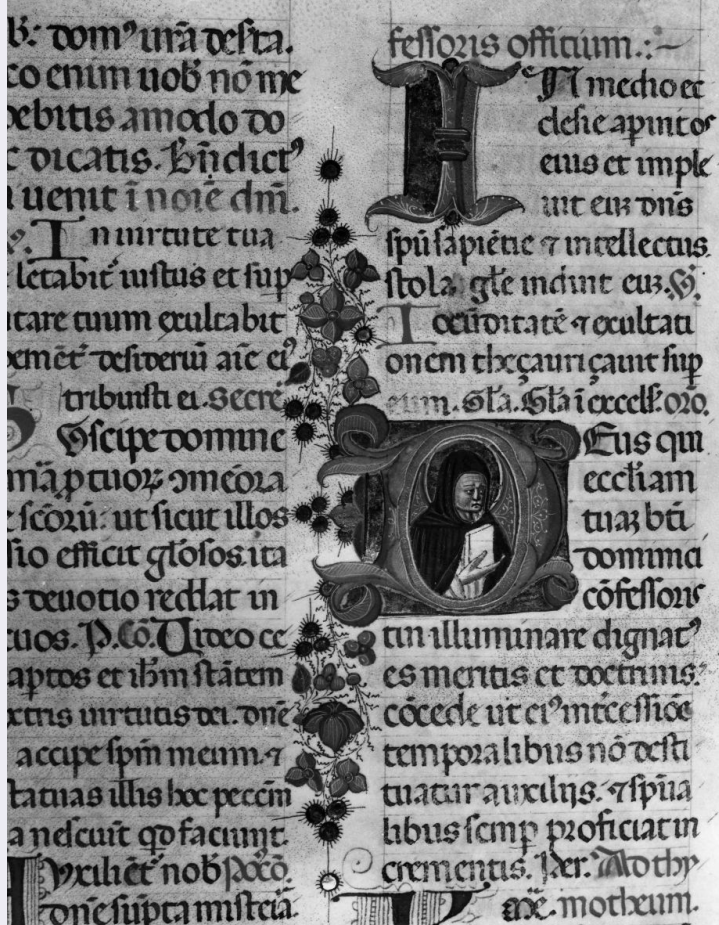 b̄: dom⁹ ura deſta.
co enim uob̄ nō me
debitis amodo do
c dicatis. Bn̄dict⁹
uenit ī noīe dn̄i.
In uirtute tua
letabit iustus et sup
tare tuum exultabit
uemēt̄ deſideriū aīe ei⁹
tribuisti ei. Secre
Suſcipe domine
mā p tuoꝝ ɔmēora
ſcōrū: ut ſicut illos
ſio efficit gl̄oſos. ita
s deuotio reddat in
cuos. P. Cō. Uideo ce
aptos et ih̄m ſtātem
extris uirtutis dei. dn̄e
accipe ſpm̄ meum. ⁊
ſtatuas illis hoc peccm̄
a neſciūt qd faciunt.
Auxiliēt̄ nob̄ Poſcō.
dn̄e ſūpta miſt̄ia.
feſſoris officium.:~
IN medio ec
cleſie aperuit os
eius et imple
uit eū dn̄s
ſpū ſapiētie ⁊ intellectus.
ſtola gl̄e induit eū. V̄.
Iocūditatē ⁊ exultati
onem theçauriçauit ſup
eum. Gl̄a. Gl̄a ī excelſ. Oro.
DEus qui
eccl̄iam
tuaꝫ bt̄i
dominici
cōfeſſoris
tui illuminare dignat⁹
es meritis et doctrinis:
cōcede ut ei⁹ int̄ceſſiōe
temporalibus nō deſti
tuatur auxilijs. ⁊ ſpūa
libus ſemp proficiat in
crementis. Per. Ad thy
mōe. motheum.